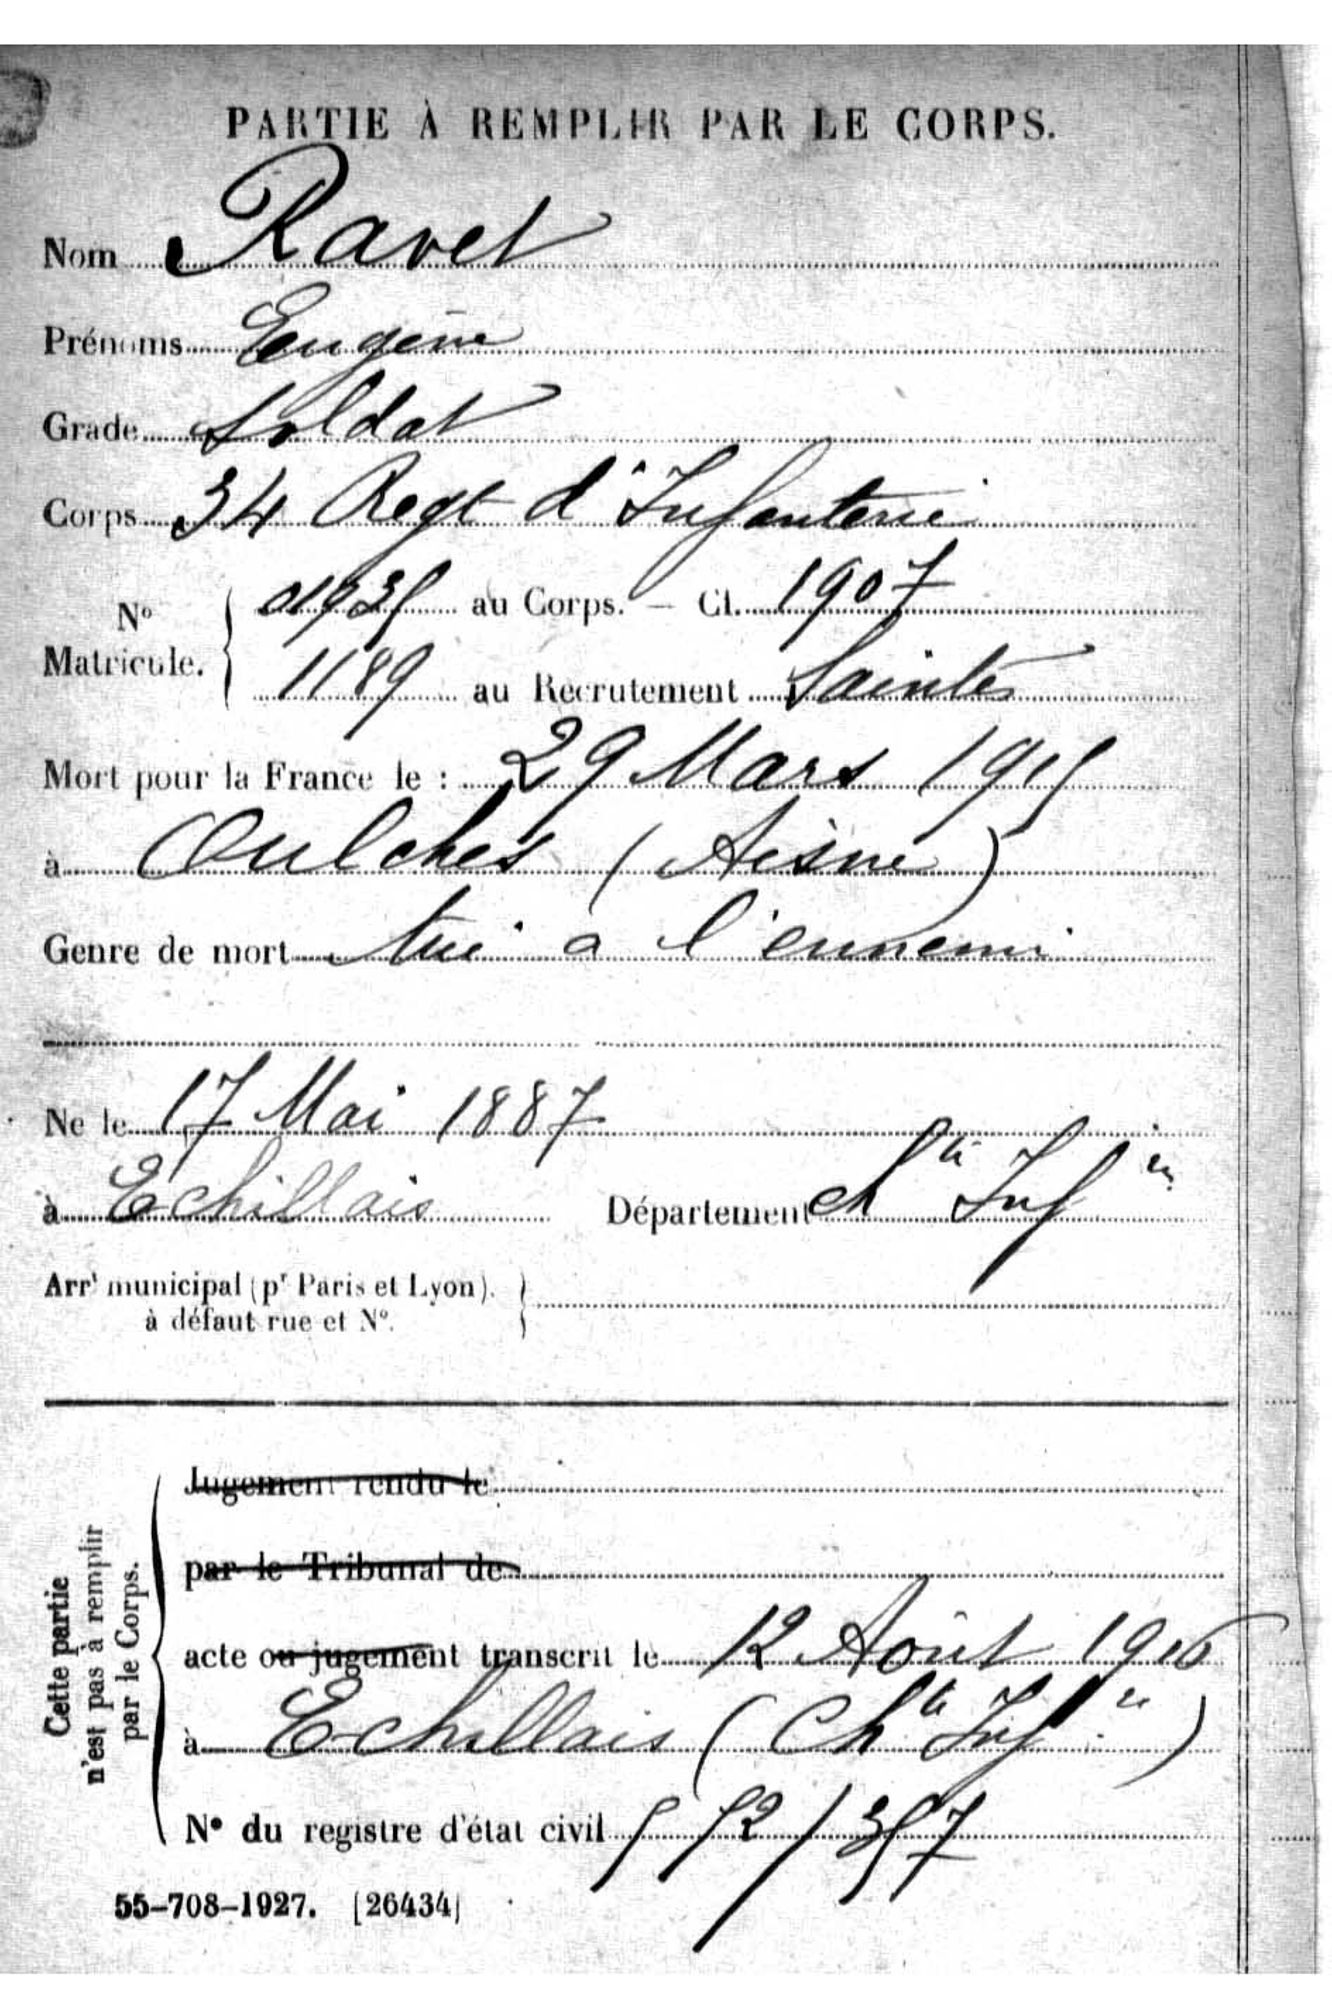 PARTIE À REMPLIR PAR LE CORPS.
Nom Ravet
Prénoms Eugène
Grade Soldat
Corps 34 Regt d'Infanterie
No Matricule. { 01935 au Corps. — Cl. 1907
1189 au Recrutement Saintes
Mort pour la France le : 29 Mars 1915
à Oulches (Aisne)
Genre de mort tué a l'ennemi
Ne le 17 Mai 1887
à Echillais Département Chte Infre
Arrt municipal (pr Paris et Lyon).
à défaut rue et No.
Cette partie
n'est pas à remplir
par le Corps.
Jugement rendu le
par le Tribunal de
acte ou jugement transcrit le 12 Août 1916
à Echillais (Chte Infre)
No du registre d'état civil 572/357
55-708-1927. [26434]